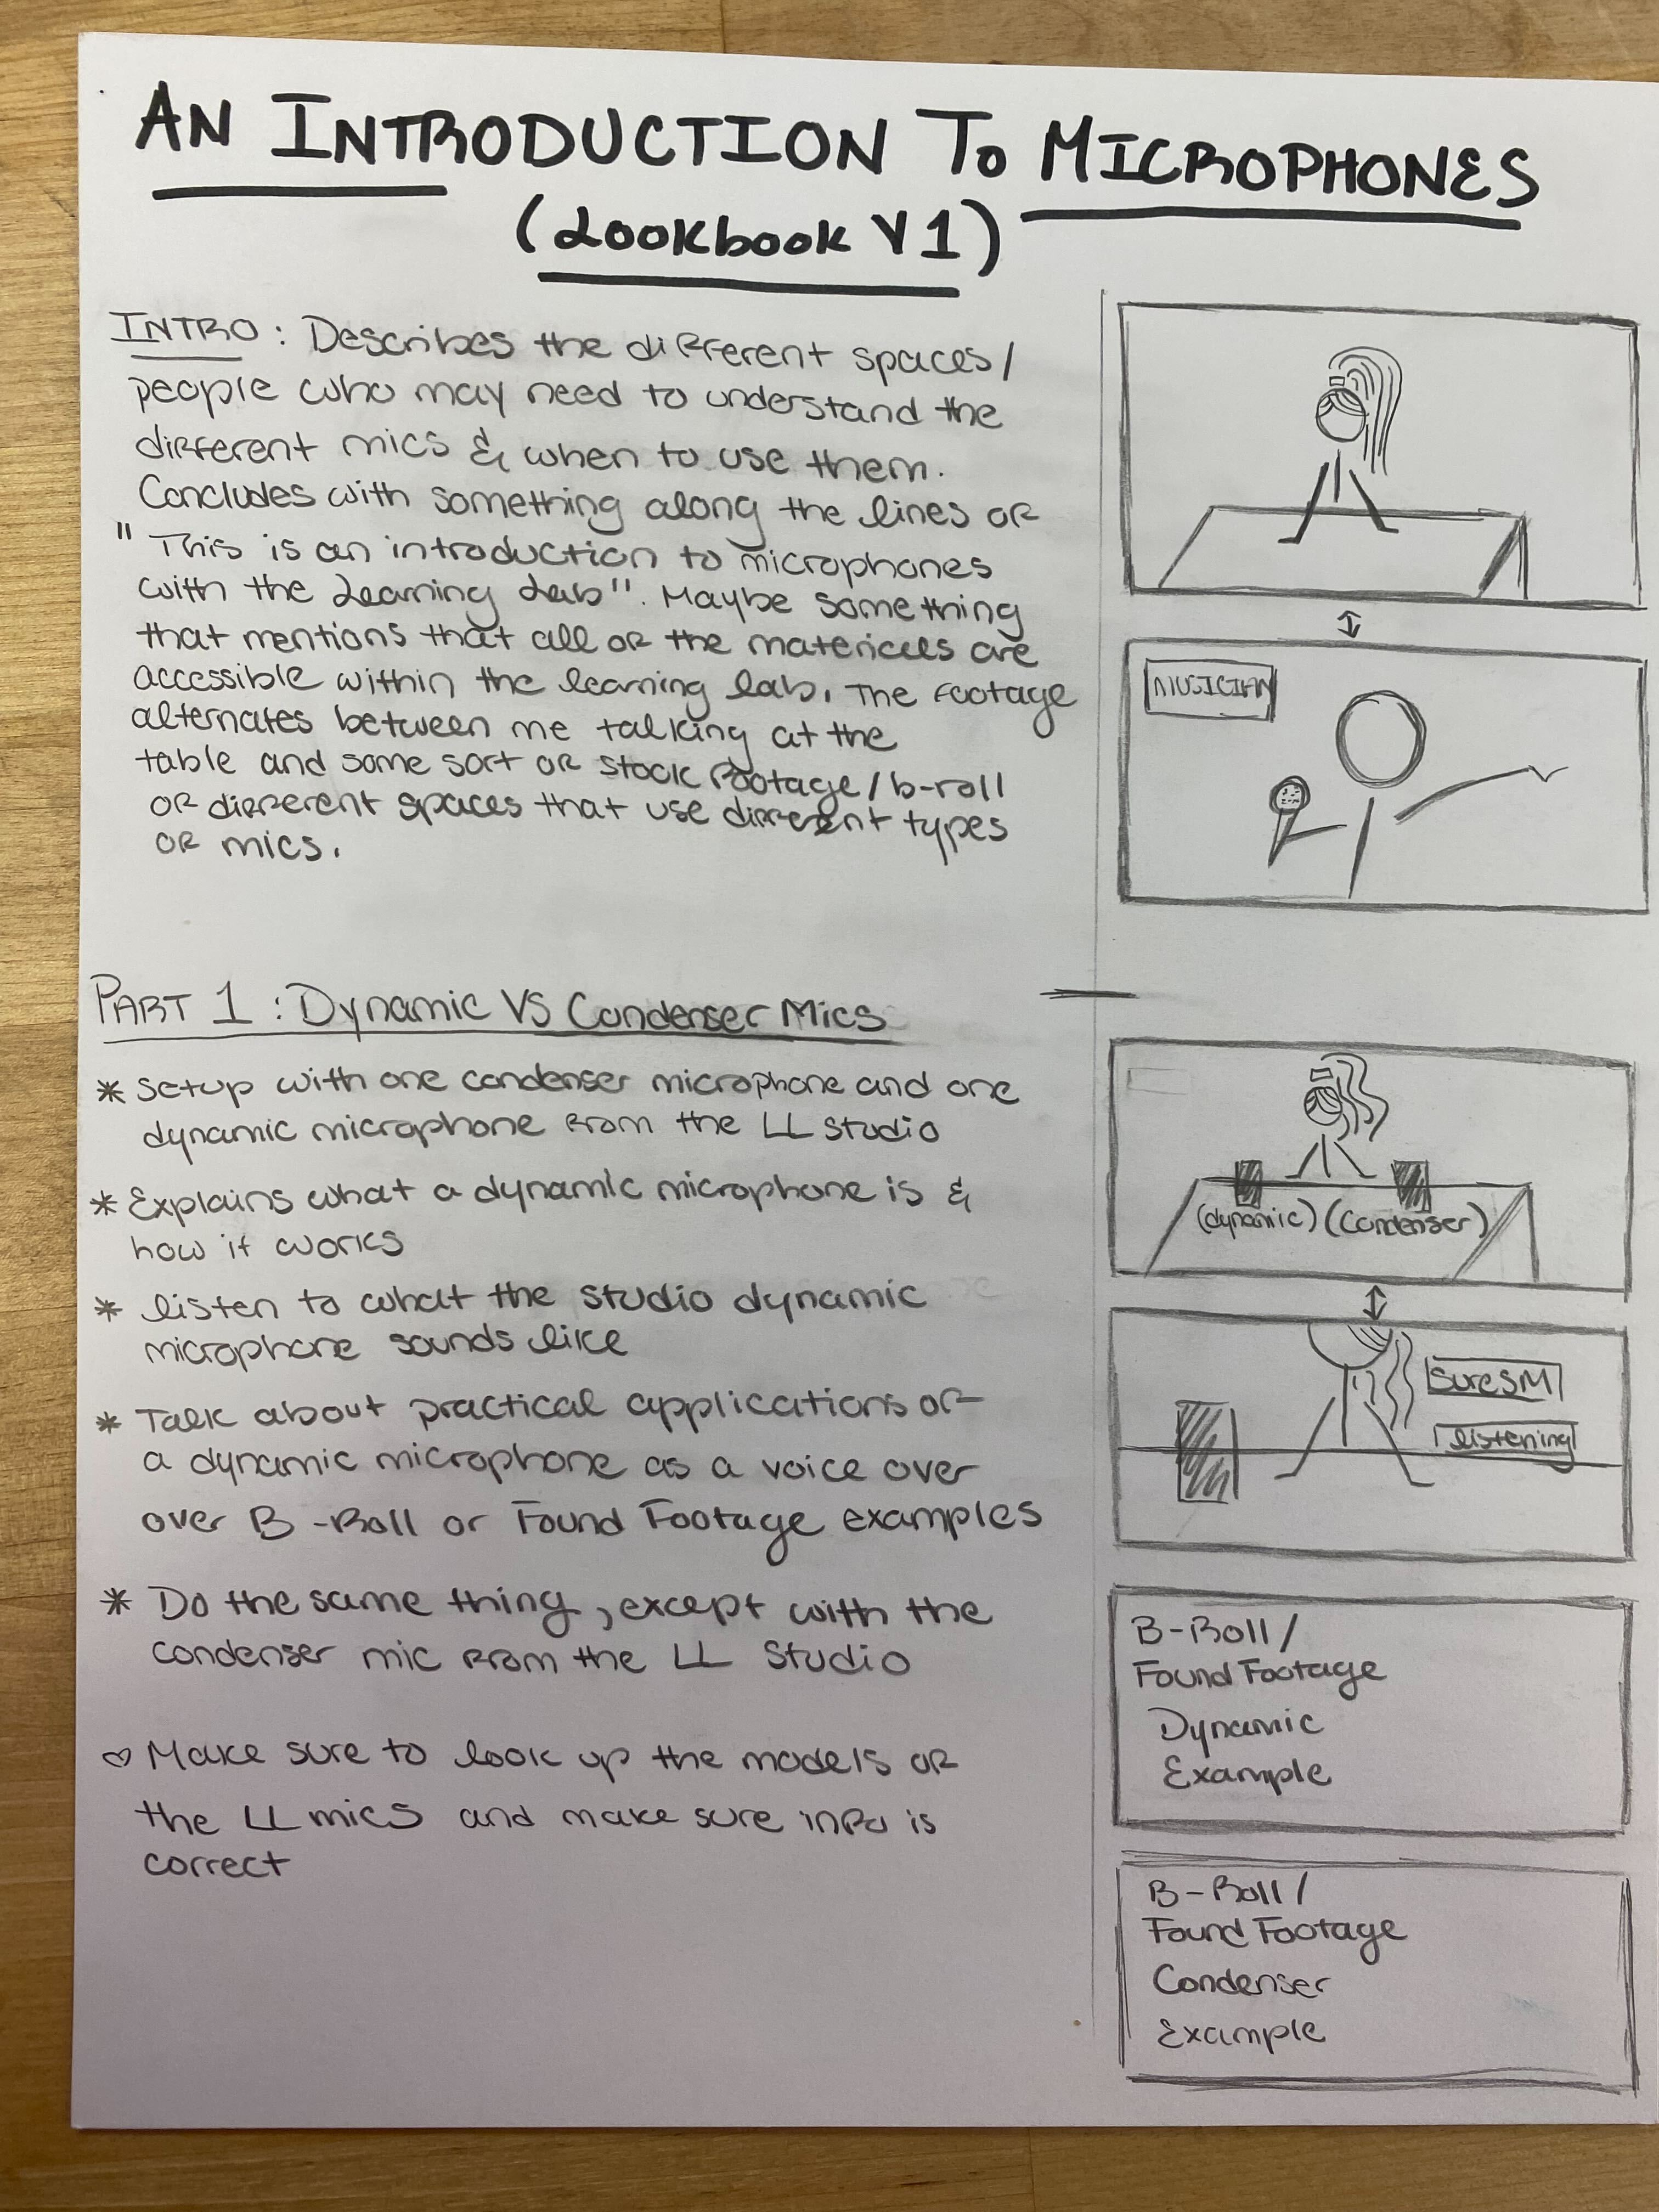 AN INTRODUCTION TO MICROPHONES
(Lookbook V1)
INTRO: Describes the different spaces/
people who may need to understand the
different mics & when to use them.
Concludes with something along the lines of
"This is an introduction to microphones
with the Learning Lab". Maybe something
that mentions that all of the materials are
accessible within the learning lab. The footage
alternates between me talking at the
table and some sort of stock footage/b-roll
of different spaces that use different types
of mics.
MUSICIAN
PART 1: Dynamic VS Condenser Mics
* Setup with one condenser microphone and one
dynamic microphone from the LL studio
* Explains what a dynamic microphone is &
how it works
* listen to what the studio dynamic
microphone sounds like
* Talk about practical applications of
a dynamic microphone as a voice over
over B-Roll or Found Footage examples
* Do the same thing, except with the
condenser mic from the LL Studio
♡ Make sure to look up the models of
the LL mics and make sure info is
correct
(dynamic) (Condenser)
SureSM
listening
B-Roll/
Found Footage
Dynamic
Example
B-Roll/
Found Footage
Condenser
Example